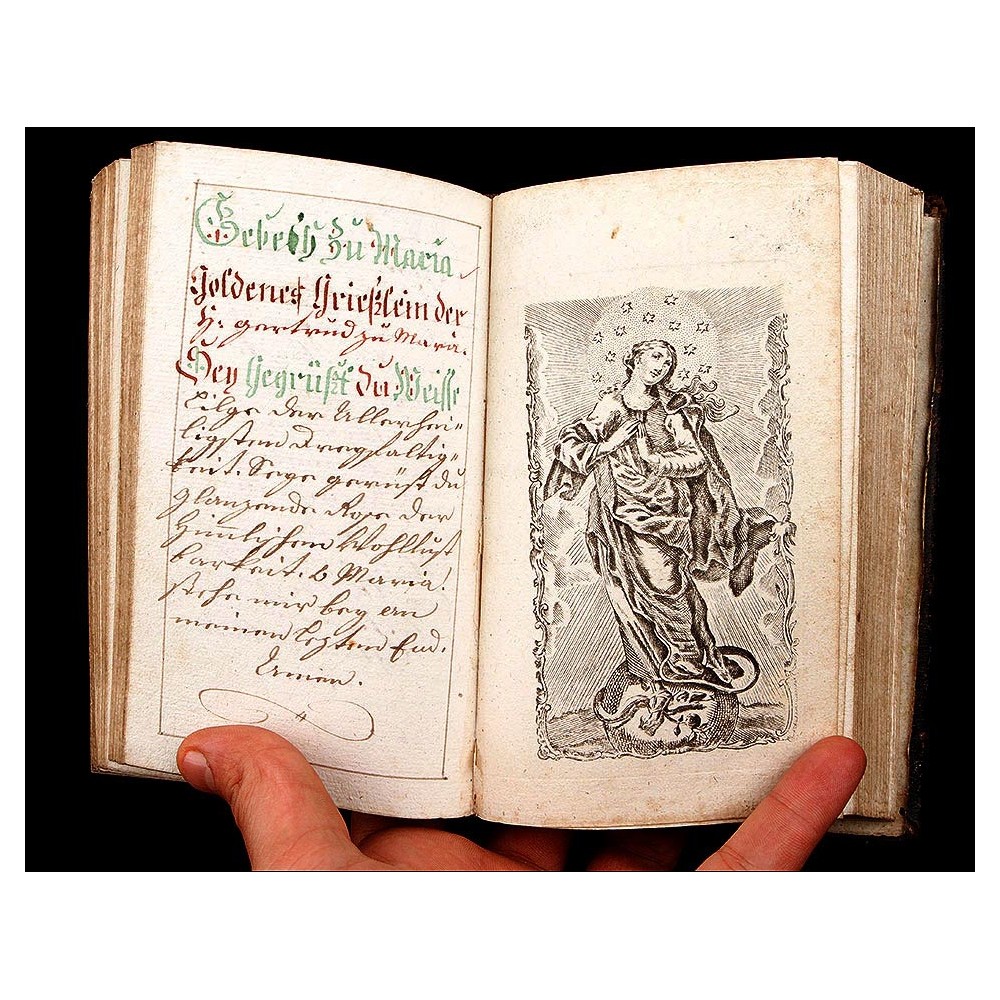 Gebeth Zu Maria
Goldenes Grießlein der
H: Gertrud zu Maria.
Sey Gegrüßt du Weisse
Lilge der Allerhei=
ligsten Dreyfaltig=
keit. Seye gerüst du
glanzende Rose der
Himlischen Wohllust
barkeit. O Maria!
stehe mir bey an
meinen lezten End.
Amen.